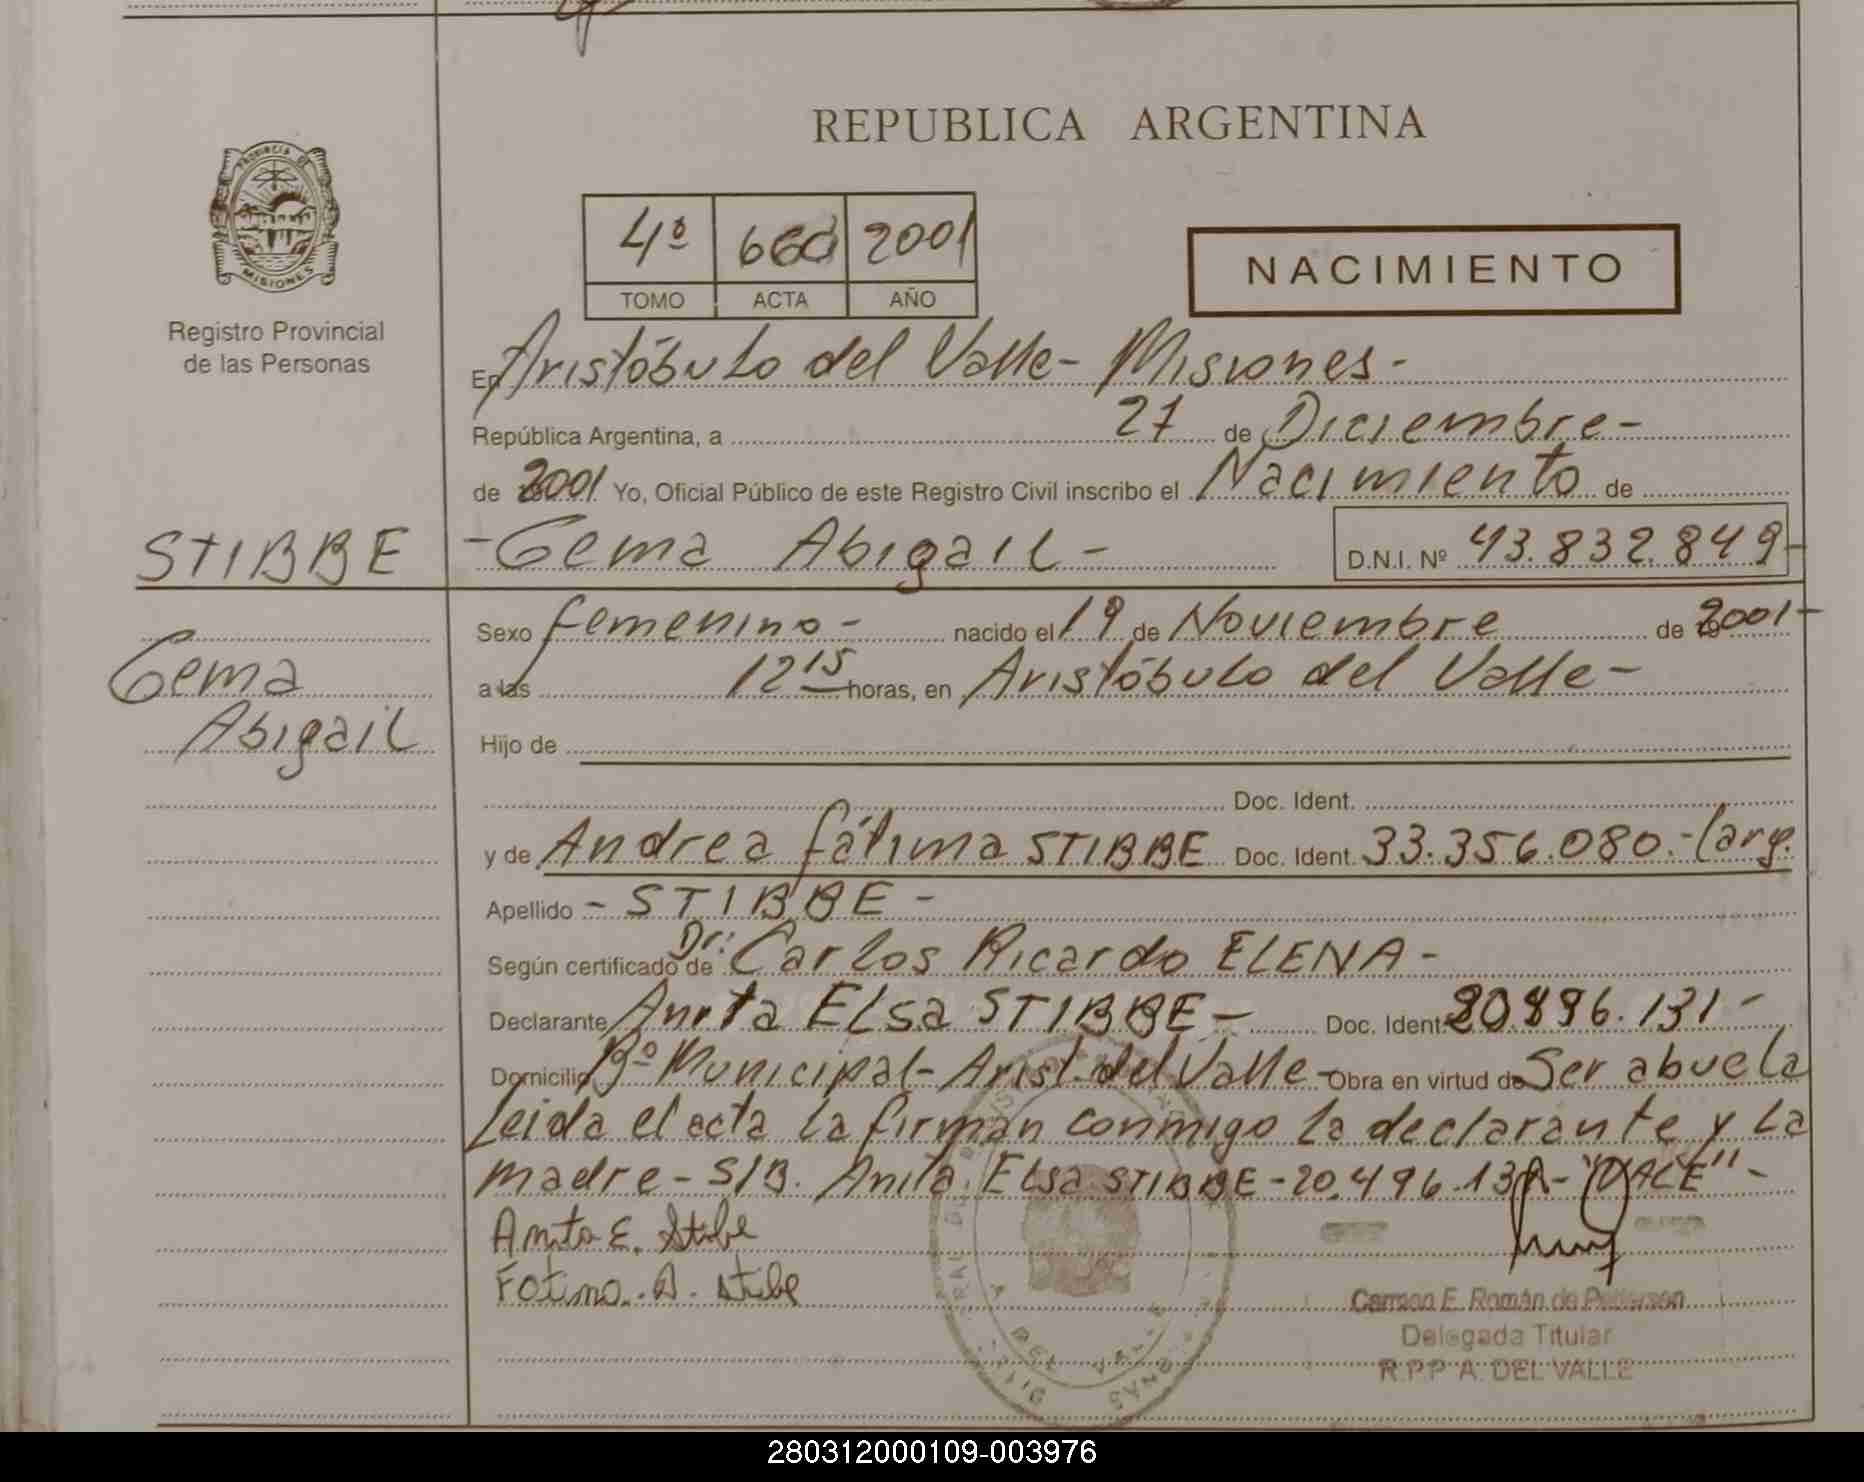 REPUBLICA ARGENTINA
PROVINCIA DE
MISIONES
Registro Provincial
de las Personas
4º 660 2001
TOMO ACTA AÑO
NACIMIENTO
En Aristóbulo del Valle- Misiones-
República Argentina, a 27 de Diciembre-
de 2001 Yo, Oficial Público de este Registro Civil inscribo el Nacimiento de
STIBBE
-Gema Abigail- D.N.I. Nº 43.832.849-
Gema
Abigail
Sexo femenino- nacido el 19 de Noviembre de 2001-
a las 12 15 horas, en Aristóbulo del Valle-
Hijo de
Doc. Ident.
y de Andrea fátima STIBBE Doc. Ident. 33.356.080.-(arg.
Apellido - STIBBE -
Según certificado de Dr: Carlos Ricardo ELENA-
Declarante Anita ELsa STIBBE- Doc. Ident. 20.496.131-
Domicilio Bº Municipal- Arist. del Valle- Obra en virtud de Ser abuela
Leida el acta la firman conmigo la declarante y la
madre- S/B. Anita ELsa STIBBE-20.496.131- "VALE"-
Anita E. Stibe
Fatima. A. stibe
Carmen E. Román de Pedersen
Delegada Titular
R.P.P A. DEL VALLE
280312000109-003976